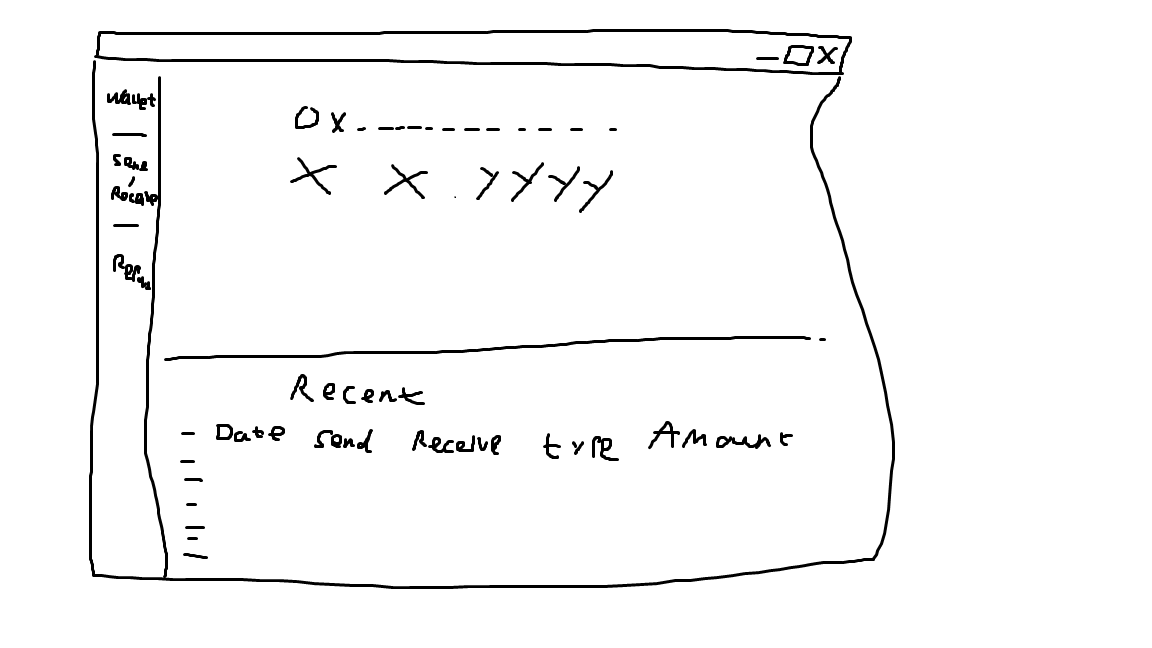 Wallet
Send
/
Receive
0x.------------
X X.YYYY
Recent
- Date Send Receive type Amount